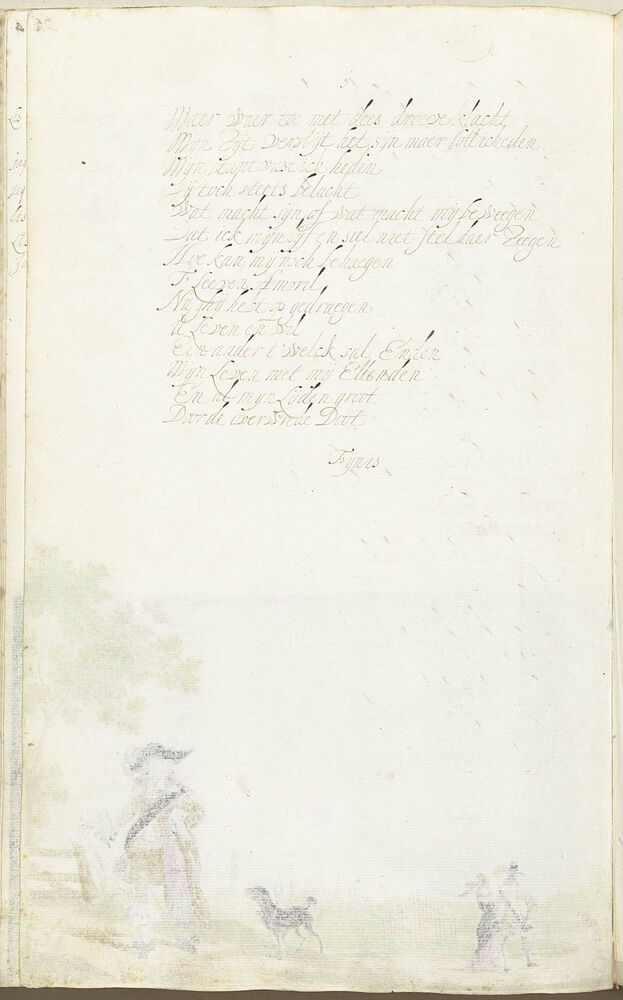 9
Maer waer toe met dees droever klacht
Mijn Tijt verslijt het sijn maer sotticheden
Mijn heden
Sij toch steets belacht
Wat macht sijn of wat macht mij beweegen
Dat ick mijn lijf en siel niet stel daer Teegen
Hoe kan mij noch behaegen
T Leeven
Nu ghij hebt op gedraegen
U Leven en Wil
Een ander t'welck sal Enden
Mijn Leven met mij Ellenden
En al mijn Lijden groot
Door de Doot
Fynis